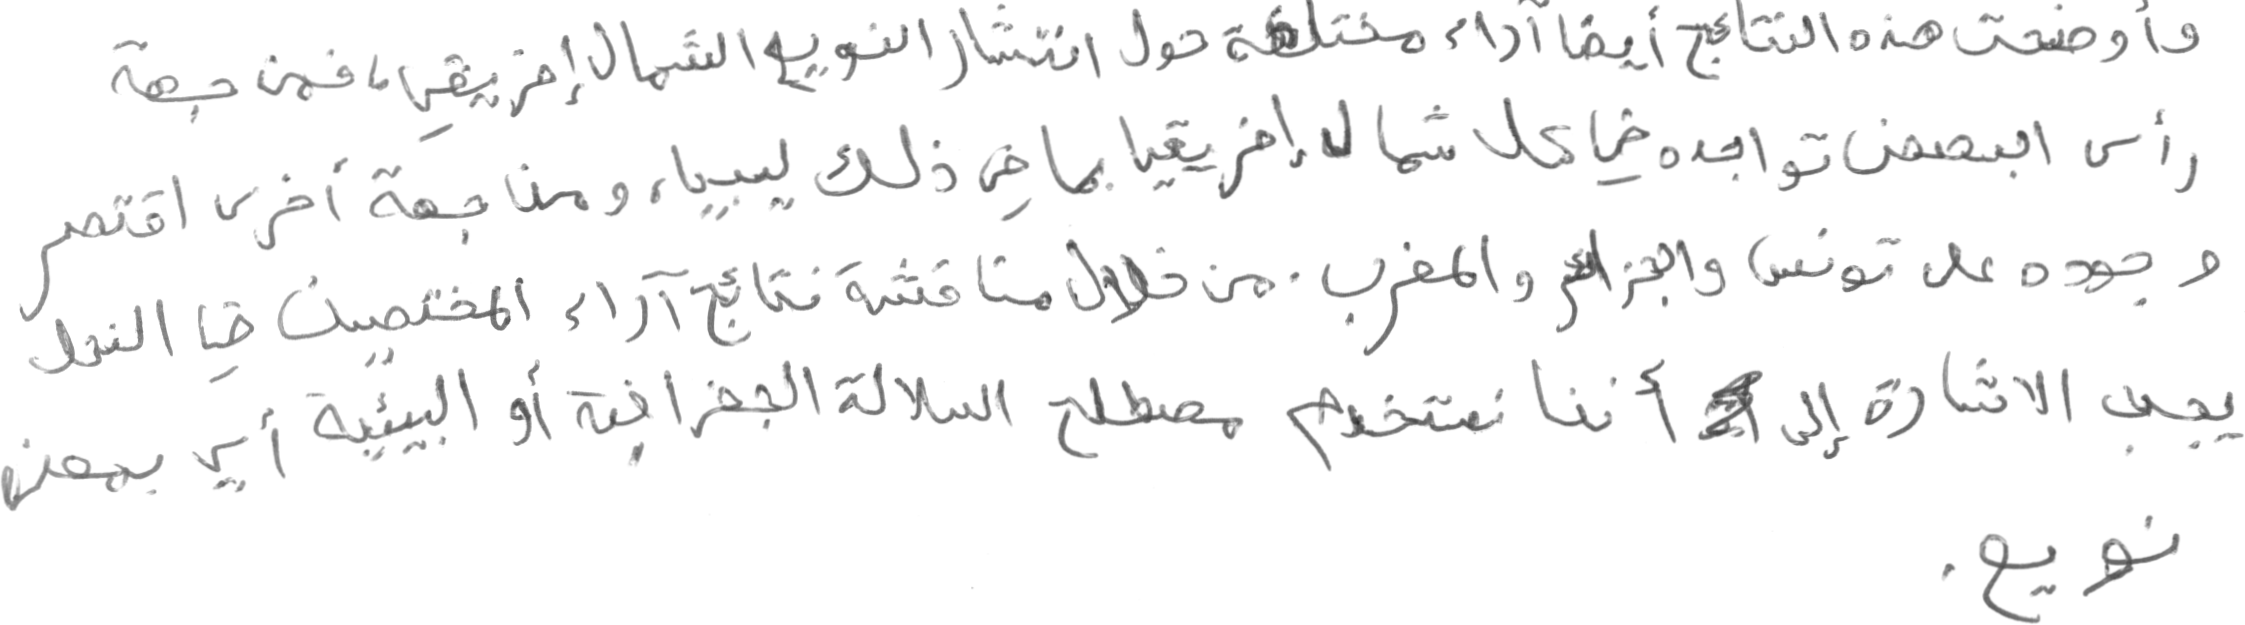 وأوضحت هذه النتائج أيضا آراء مختلفة حول انتشار النويع الشمال إفريقي، فمن جهة
رأى البعض تواجده في كل شمال إفريقيا بما في ذلك ليبيا، ومن جهة أخرى اقتصر
وجوده على تونس والجزائر والمغرب. من خلال مناقشة نتائج آراء المختصين في النحل
يجب الاشارة إلى أننا نستخدم مصطلح السلالة الجغرافية أو البيئية أي بمعنى
نويع.